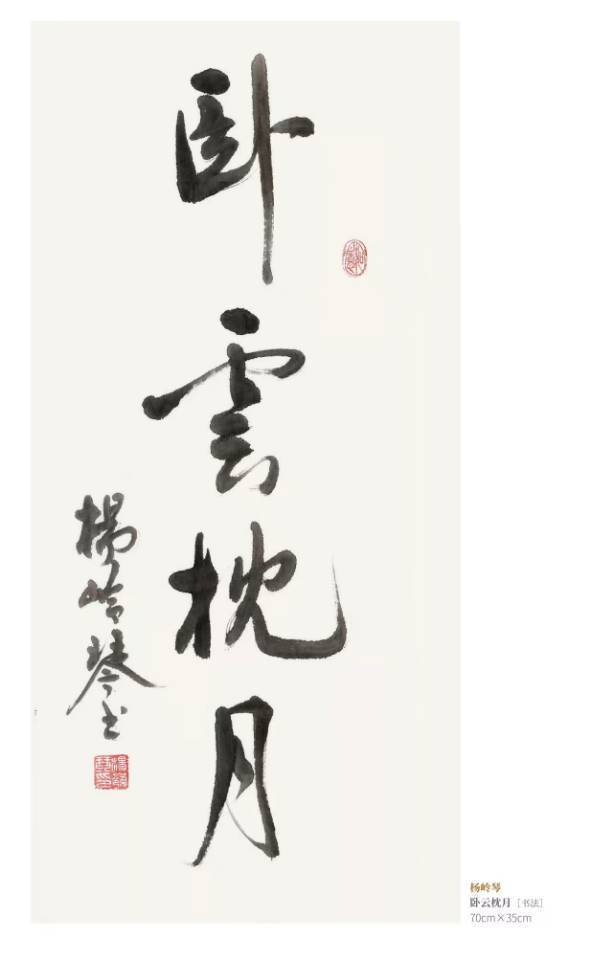 卧雲枕月
楊岭琴书
杨岭琴
卧云枕月 [书法]
70cm×35cm